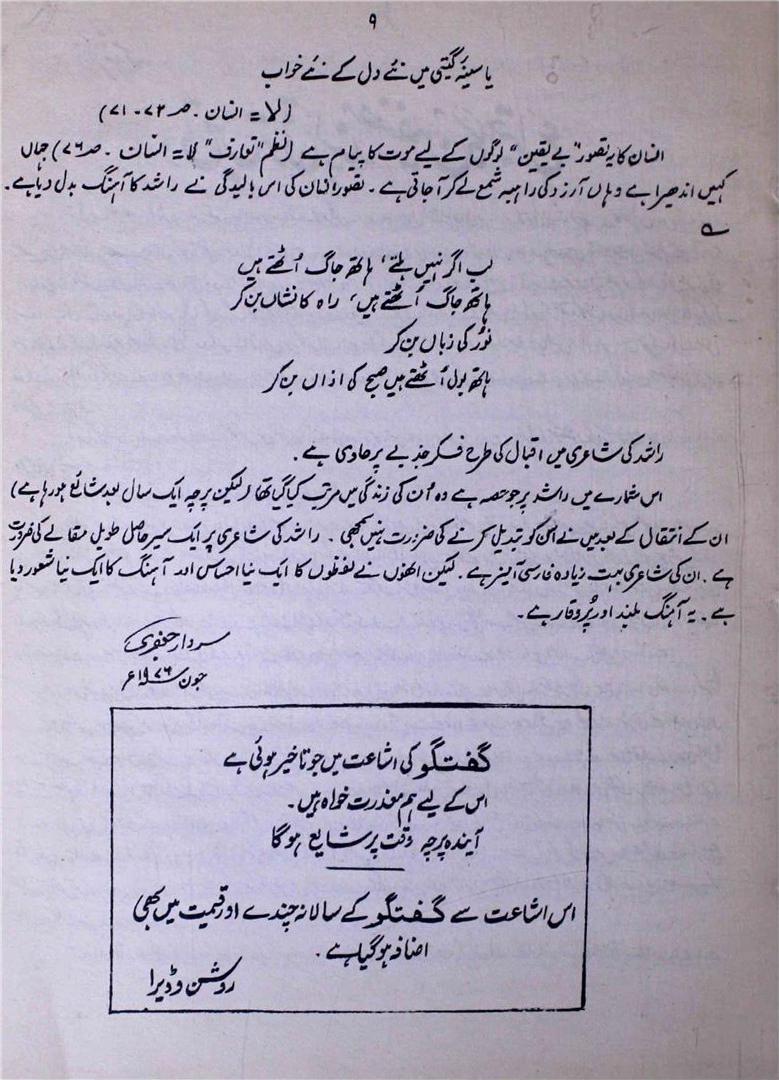 ۹
یا سینۂ گیتی میں نئے دل کے نئے خواب
(لا = انسان ۔ صہ ۷۲ ۔ ۷۱)
انسان کا یہ تصور "بے یقین" لوگوں کے لیے موت کا پیام ہے (نظم "تعارف" لا = انسان ۔ صہ ۷۶) جہاں
کہیں اندھیرا ہے وہاں آرزو کی راہبہ شمع لے کر آجاتی ہے ۔ تصور انسان کی اس بالیدگی نے راشد کا آہنگ بدل دیا ہے ۔
ے
لب اگر نہیں ہلتے ، ہاتھ جاگ اُٹھتے ہیں
ہاتھ جاگ اُٹھتے ہیں ، راہ کا نشاں بن کر
نور کی زباں بن کر
ہاتھ بول اُٹھتے ہیں صبح کی اذاں بن کر
راشد کی شاعری میں اقبال کی طرح فکر جذبے پر حاوی ہے ۔
اس شمارے میں راشد پر جو حصہ ہے وہ اُن کی زندگی میں مرتب کیا گیا تھا (لیکن پرچہ ایک سال بعد شایع ہو رہا ہے)
ان کے انتقال کے بعد میں نے اس کو تبدیل کرنے کی ضرورت نہیں سمجھی ۔ راشد کی شاعری پر ایک سیر حاصل طویل مقالے کی ضرورت
ہے ۔ ان کی شاعری بہت زیادہ فارسی آمیز ہے ۔ لیکن انھوں نے لفظوں کا ایک نیا احساس اور آہنگ کا ایک نیا شعور دیا
ہے ۔ یہ آہنگ بلند اور پُر وقار ہے ۔
سردار جعفری
جون ۱۹۷۶ء
گفتگو کی اشاعت میں جو تاخیر ہوئی ہے
اس کے لیے ہم معذرت خواہ ہیں ۔
آیندہ پرچہ وقت پر شایع ہوگا
اس اشاعت سے گفتگو کے سالانہ چندے اور قیمت میں بھی
اضافہ ہو گیا ہے ۔
روشن وڈیرا